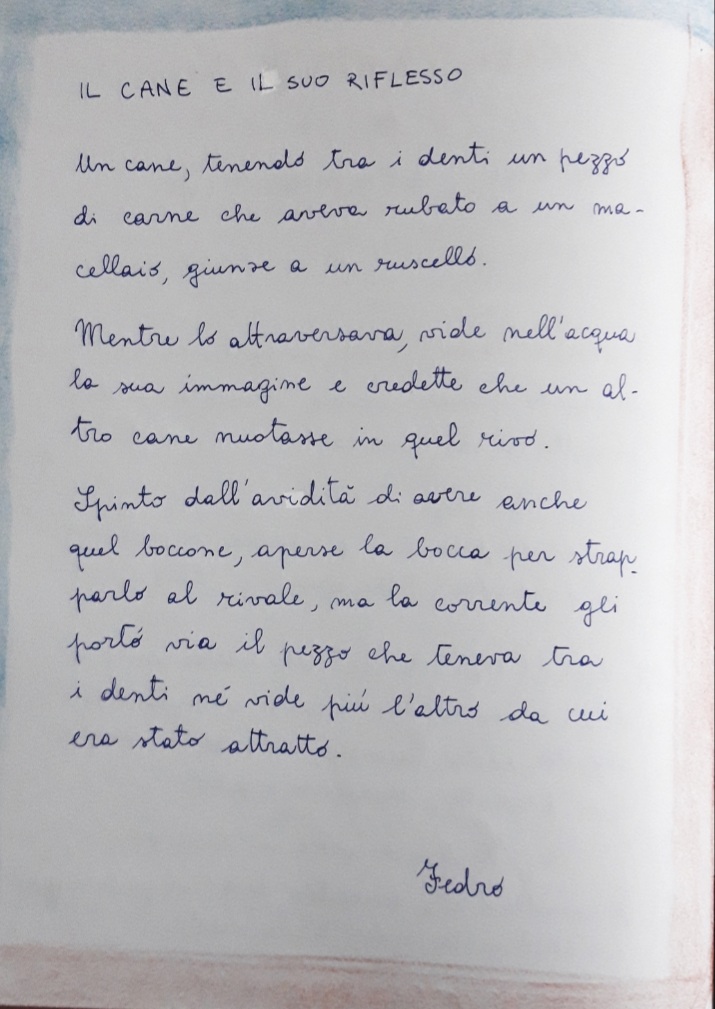 IL CANE E IL SUO RIFLESSO
Un cane, tenendo tra i denti un pezzo
di carne che aveva rubato a un ma-
cellaio, giunse a un ruscello.
Mentre lo attraversava, vide nell'acqua
la sua immagine e credette che un al-
tro cane nuotasse in quel rivo.
Spinto dall'avidità di avere anche
quel boccone, aperse la bocca per strap-
parlo al rivale, ma la corrente gli
portó via il pezzo che teneva tra
i denti né vide piú l'altro da cui
era stato attratto.
Fedro